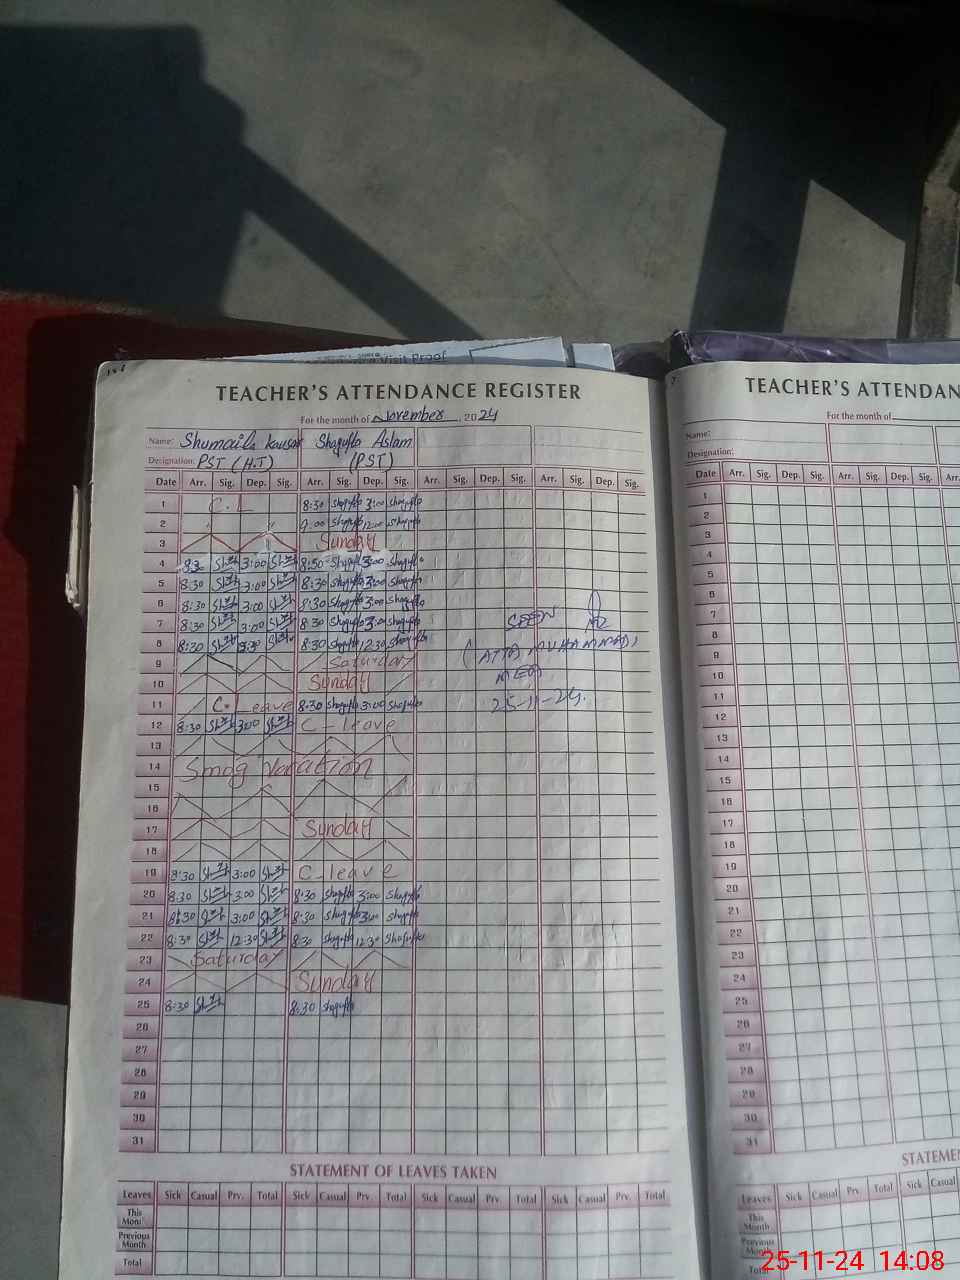 Visit Proof
TEACHER'S ATTENDANCE REGISTER
For the month of November, 2024
Name: Shumaila Kausar Shagufta Aslam
Designation: PST (H.T) (PST)
Date Arr. Sig. Dep. Sig. Arr. Sig. Dep. Sig. Arr. Sig. Dep. Sig. Arr. Sig. Dep. Sig.
1 C.L 8:30 Shagufta 3:00 Shagufta
2 9:00 Shagufta 12:00 Shagufta
3 Sunday
4 8:30 3:00 8:30 Shagufta 3:00 Shagufta
5 8:30 3:00 8:30 Shagufta 3:00 Shagufta
6 8:30 3:00 8:30 Shagufta 3:00 Shagufta
7 8:30 3:00 8:30 Shagufta 3:00 Shagufta
8 8:30 8:30 Shagufta 12:30 Shagufta
9 Saturday
10 Sunday
11 C.Leave 8:30 Shagufta 3:00 Shagufta
12 8:30 3:00 C-leave
13
14 Smog Vacation
15
16
17 Sunday
18
19 8:30 3:00 C-leave
20 8:30 3:00 8:30 Shagufta 3:00 Shagufta
21 8:30 3:00 8:30 Shagufta 3:00 Shagufta
22 8:30 12:30 8:30 Shagufta 12:30 Shagufta
23 Saturday
24 Sunday
25 8:30 8:30 Shagufta
26
27
28
29
30
31
SEEN
(ATTA MUHAMMAD)
25-11-24.
STATEMENT OF LEAVES TAKEN
Leaves Sick Casual Prv. Total Sick Casual Prv. Total Sick Casual Prv. Total Sick Casual Prv. Total
This Month
Previous Month
Total
TEACHER'S ATTENDAN
For the month of
Name:
Designation:
Date Arr. Sig. Dep. Sig. Arr. Sig. Dep. Sig.
1
2
3
4
5
6
7
8
9
10
11
12
13
14
15
16
17
18
19
20
21
22
23
24
25
26
27
28
29
30
31
STATEME
Leaves Sick Casual Prv. Total Sick Casual
This Month
Previous Month
Total
25-11-24 14:08